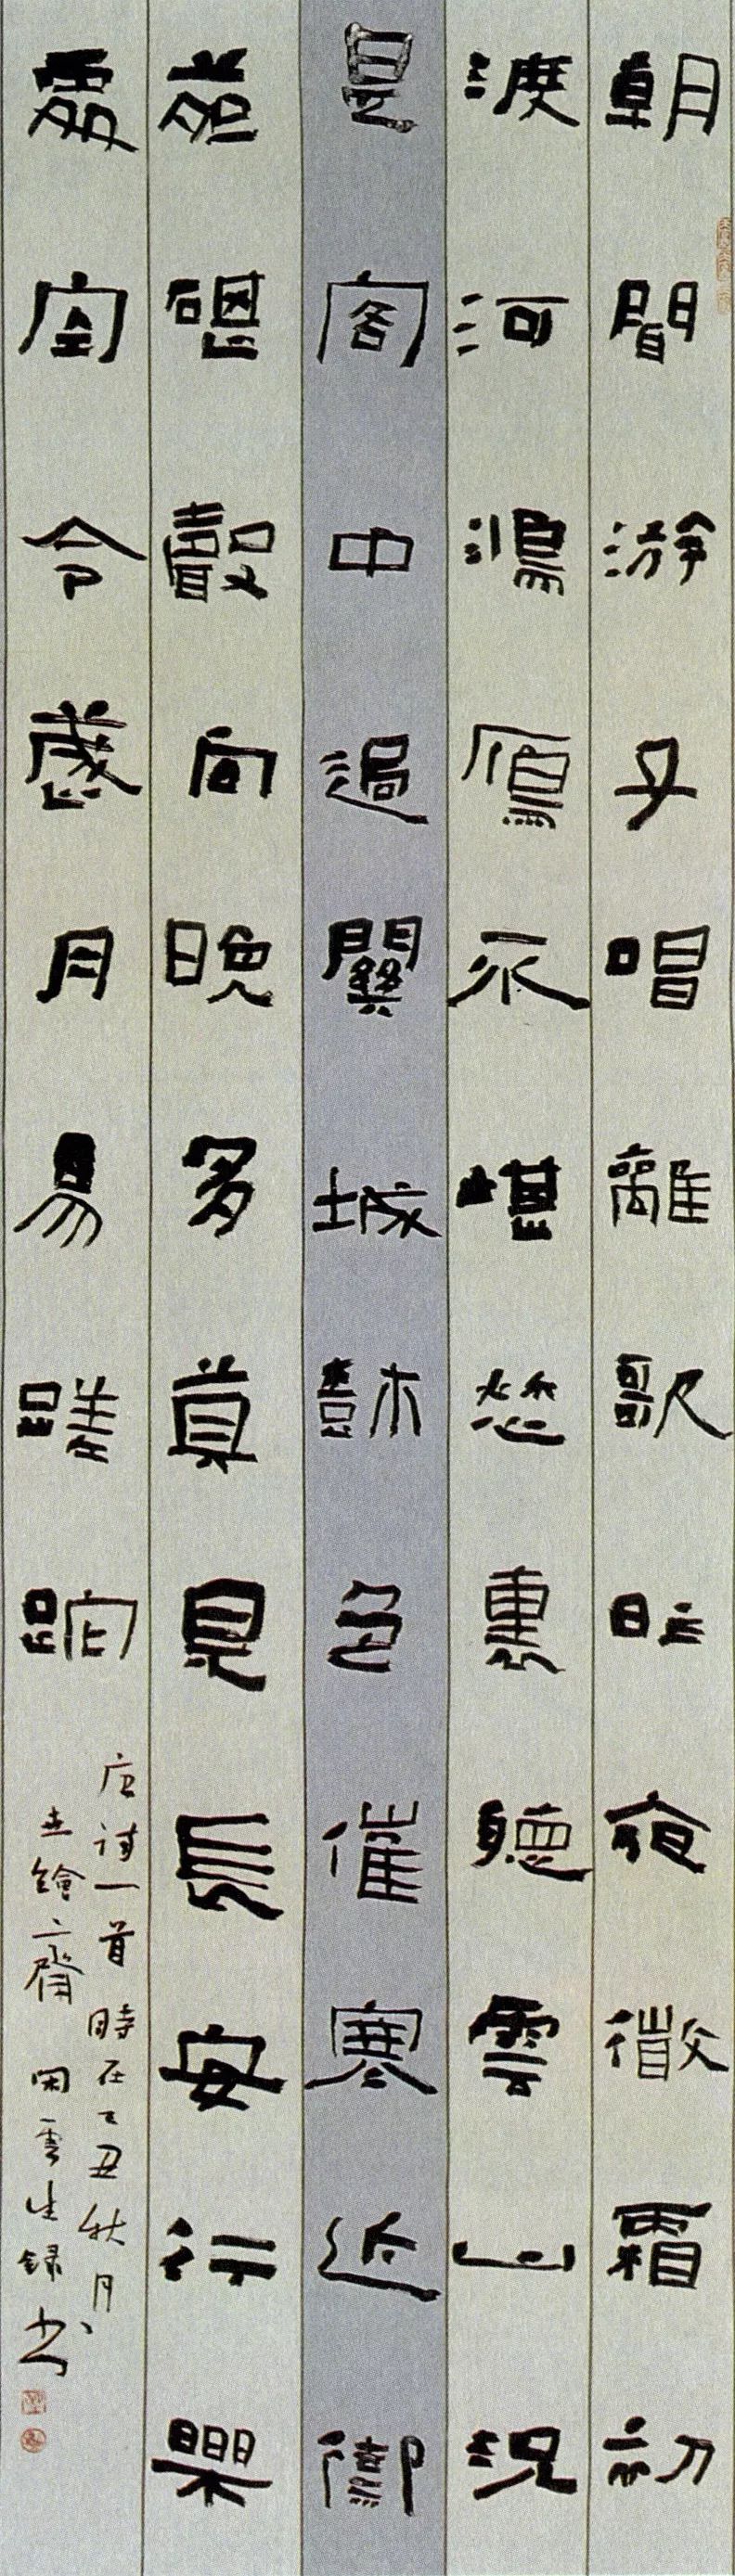 朝聞游子唱離歌昨夜微霜初
渡河鴻鴈不堪愁裏聽雲山況
是客中過關城樹色催寒近御
苑碪聲向晚多莫見長安行樂
處空令歲月易蹉跎
唐詩一首時在乙丑秋月
繪齋閑雲生錦书